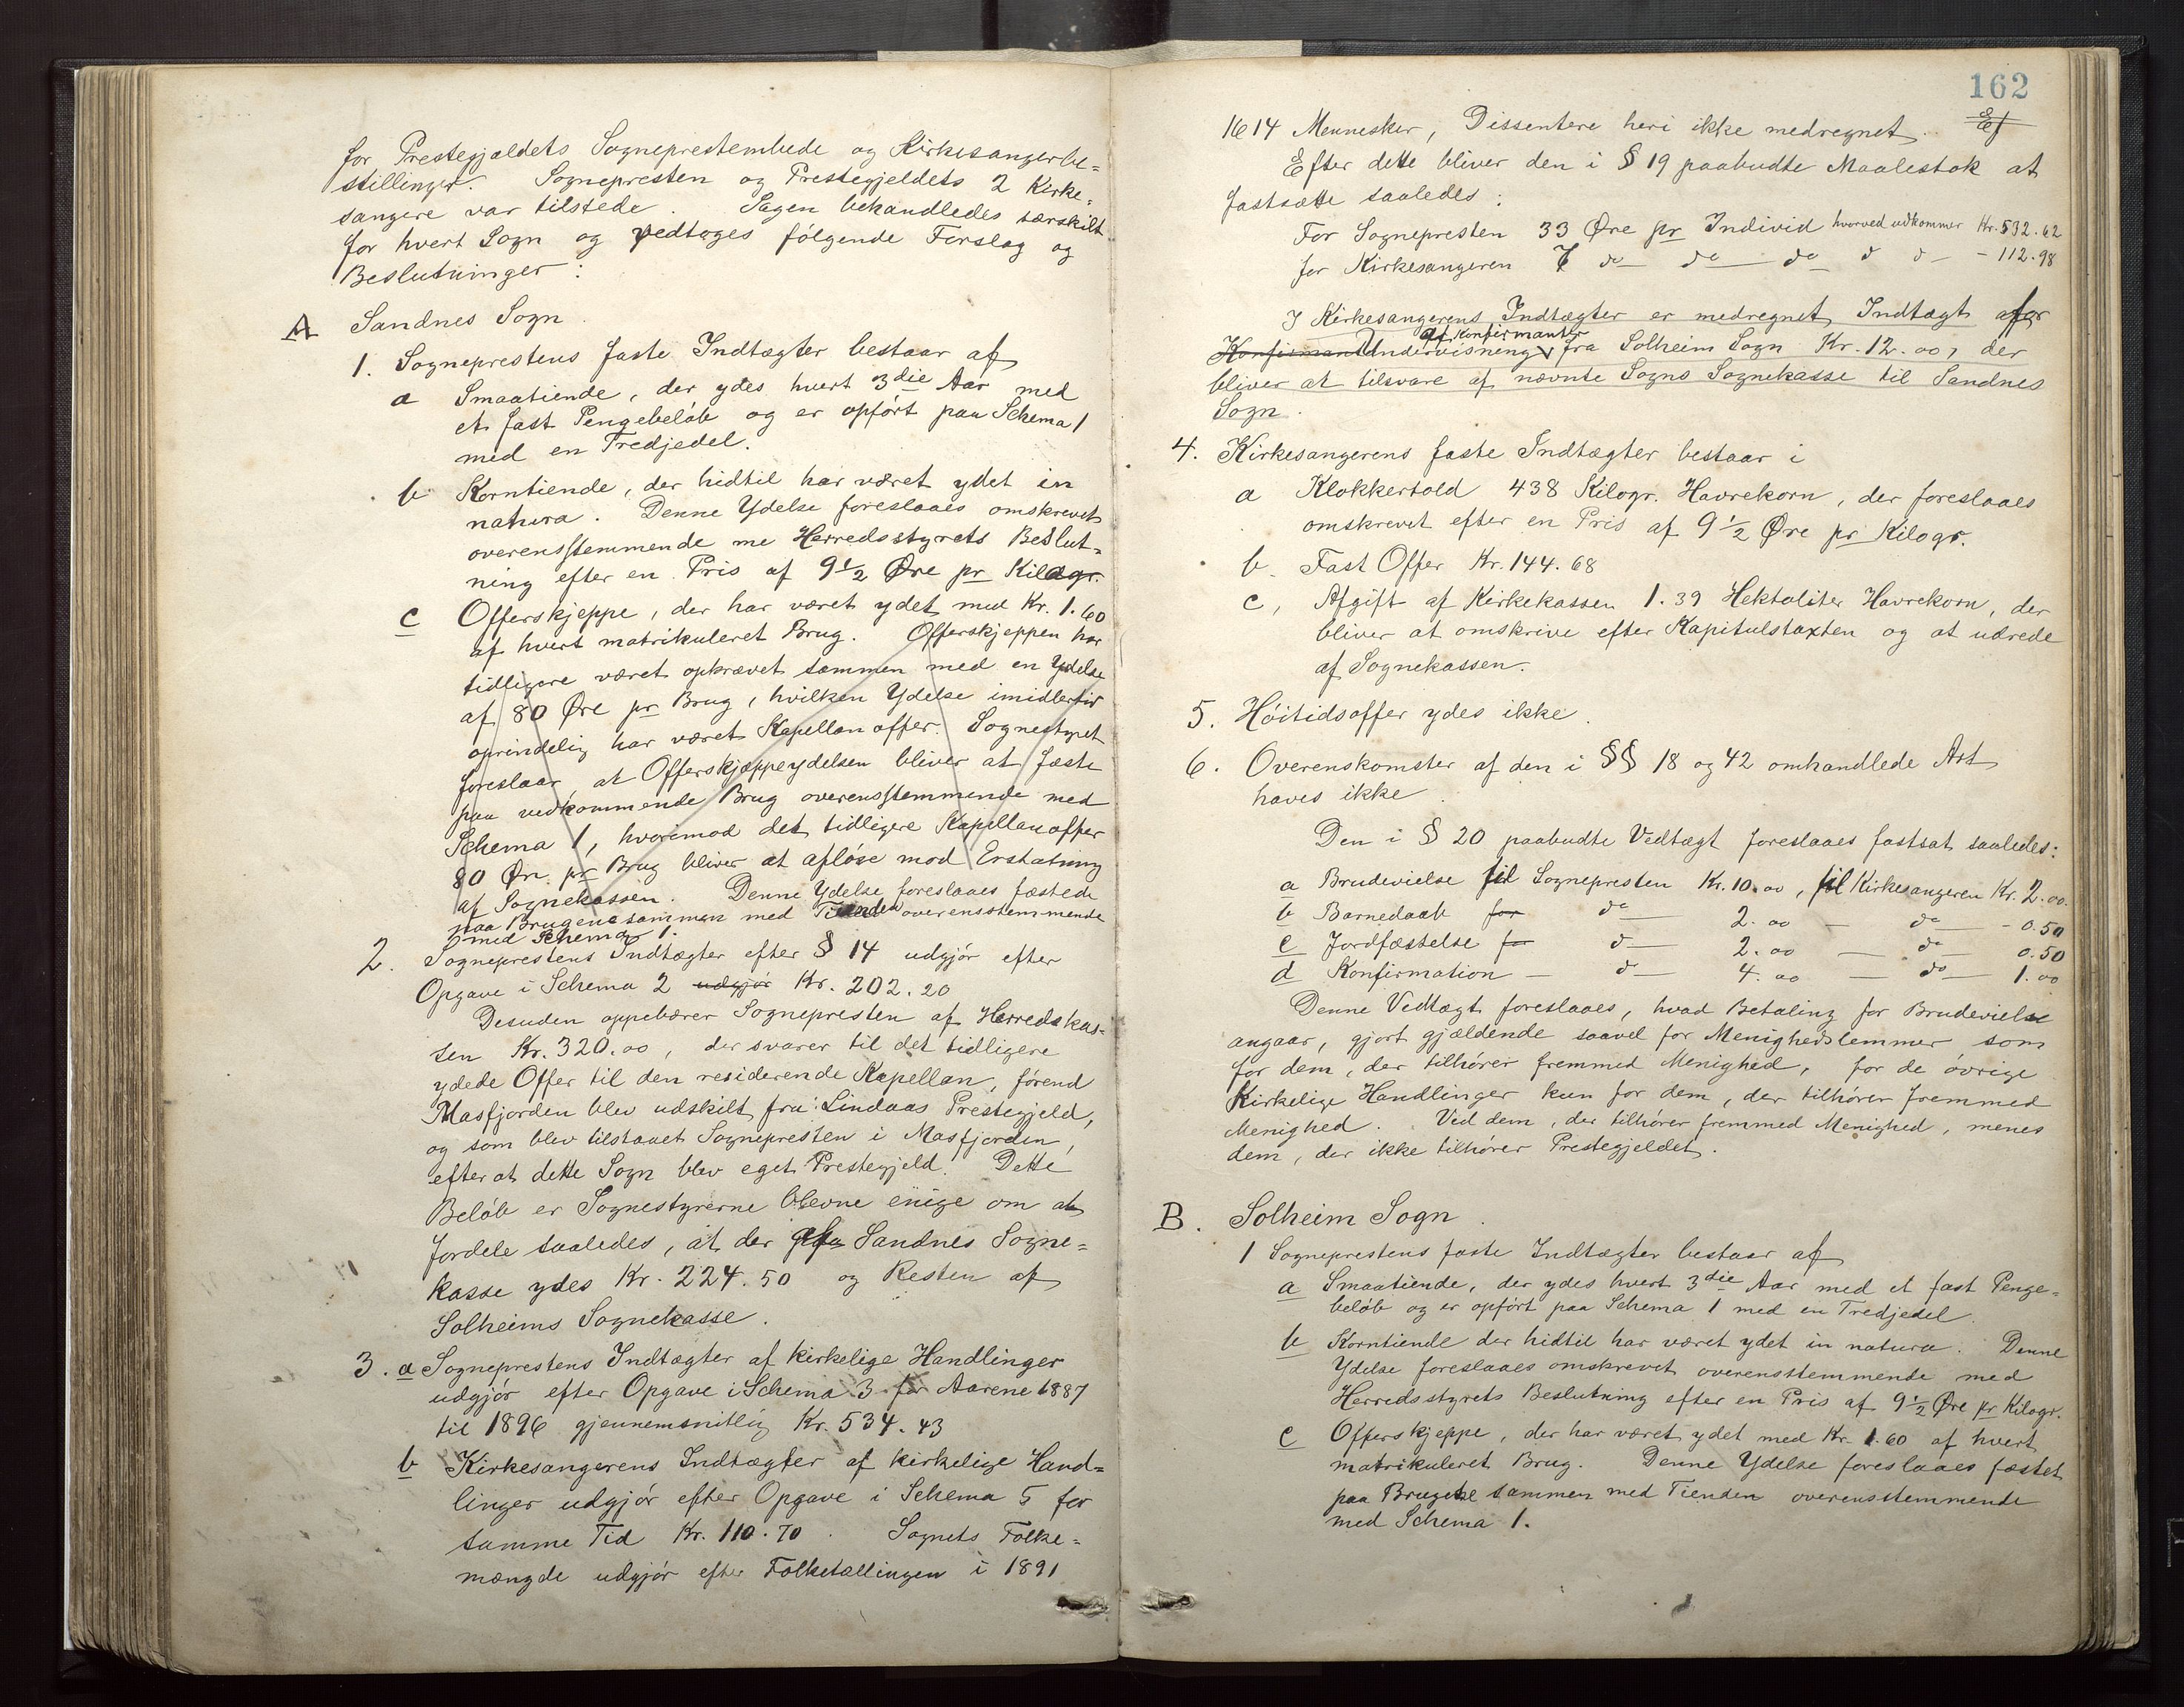 for Prestegjældets Sogneprestembede og Kirkesangerbe=
stillinger. Sognepresten og Prestegjeldets 2 Kirke=
sangere var tilstede. Sagen behandledes særskilt
for hvert Sogn og vedtoges følgende Forslag og
Beslutninger:
A Sandnes Sogn.
1. Sogneprestens faste Indtægter bestaar af
a Smaatiende, der ydes hvert 3die Aar med
et fast Pengebeløb og er opført paa Schema 1
med en Tredjedel.
b Korntiende, der hidtil har været ydet in
natura. Denne Ydelse foreslaaes omskrevet
overensstemmende me Herredsstyrets Beslut=
ning efter en Pris af 9 1/2 Øre pr Kilogr.
c Offerskjeppe, der har været ydet med Kr. 1.60
af hvert matrikuleret Brug. Offerskjeppen har
tidligere været opkrævet sammen med en Ydelse
af 80 Øre pr Brug, hvilken Ydelse imidlertid
oprindelig har været Kapellanoffer. Sognestyret
foreslaar, at Offerskjæppeydelsen bliver at fæste
paa vedkommende Brug overensstemmende med
Schema 1, hvorimod det tidligere Kapellanoffer
80 Øre pr Brug bliver at afløse mod Erstatning
af Sognekassen. Denne Ydelse foreslaaes fæstede
paa Brugene sammen med Tienden overensstemmende
med Schema 1.
2. Sogneprestens Indtægter efter § 14 udgjør efter
Opgave i Schema 2 udgjør Kr. 202.20
Desuden oppebærer Sognepresten af Herredskas=
sen Kr. 320.00, der svarer til det tidligere
ydede Offer til den residerende Kapellan, førend
Masfjorden blev udskilt fra Lindaas Prestegjeld,
og som blev tilstaaet Sognepresten i Masfjorden,
efter at dette Sogn blev eget Prestegjeld. Dette
Beløb er Sognestyrerne blevne enige om at
fordele saaledes, at der af Sandnes Sogne=
kasse ydes Kr. 224.50 og Resten af
Solheims Sognekasse.
3. a Sogneprestens Indtægter af kirkelige Handlinger
udgjør efter Opgave i Schema 3 for Aarene 1887
til 1896 gjennemsnitlig Kr. 534.43
b Kirkesangerens Indtægter af kirkelige Hand=
linger udgjør efter Opgave i Schema 5 for
samme Tid Kr. 110.70. Sognets Folke=
mængde udgjør efter Folketællingen i 1891
162
1614 Mennesker, Dissentere heri ikke medregnet. Ef
Efter dette bliver den i § 19 paabudte Maalestok at
fastsætte saaledes:
For Sognepresten 33 Øre pr Individ hvorved udkommer Kr. 532.62
for Kirkesangeren 7 do — do — do d d — - 112.98
I Kirkesangerens Indtægter er medregnet Indtægt for
Konfirmant Undervisning af Konfirmanter fra Solheim Sogn Kr. 12.00, der
bliver at tilsvare af nævnte Sogns Sognekasse til Sandnes
Sogn.
4. Kirkesangerens faste Indtægter bestaar i
a Klokkertold 438 Kilogr. Havrekorn, der foreslaaes
omskrevet efter en Pris af 9 1/2 Øre pr Kilogr.
b. Fast Offer Kr. 144.68
c, Afgift af Kirkekassen 1.39 Hektoliter Havrekorn, der
bliver at omskrive efter Kapitulstaxten og at udrede
af Sognekassen.
5. Høitidsoffer ydes ikke.
6. Overenskomster af den i §§ 18 og 42 omhandlede Art
haves ikke.
Den i § 20 paabudte Vedtægt foreslaaes fastsat saaledes:
a Brudevielse til Sognepresten Kr. 10.00, til Kirkesangeren Kr. 2.00.
b Barnedaab for do — 2.00 — do — - 0.50
c Jordfæstelse for d — 2.00 — do — 0.50
d Konfirmation — d — 4.00 — do — 1.00
Denne Vedtægt foreslaaes, hvad Betaling for Brudevielse
angaar, gjort gjældende saavel for Menighedslemmer som
for dem, der tilhører fremmed Menighed, for de øvrige
Kirkelige Handlinger kun for dem, der tilhører fremmed
Menighed. Ved dem, der tilhører fremmed Menighed, menes
dem, der ikke tilhører Prestegjeldet.
B. Solheim Sogn.
1 Sogneprestens faste Indtægter bestaar af
a Smaatiende, der ydes hvert 3die Aar med et fast Penge=
beløb og er opført paa Schema 1 med en Tredjedel.
b Korntiende der hidtil har været ydet in natura. Denne
Ydelse foreslaaes omskrevet overensstemmende med
Herredsstyrets Beslutning efter en Pris af 9 1/2 Øre pr Kilogr.
c Offerskjeppe, der har været ydet med Kr. 1.60 af hvert
matrikuleret Brug. Denne Ydelse foreslaaes fæstet
paa Brugene sammen med Tienden overensstemmende
med Schema 1.